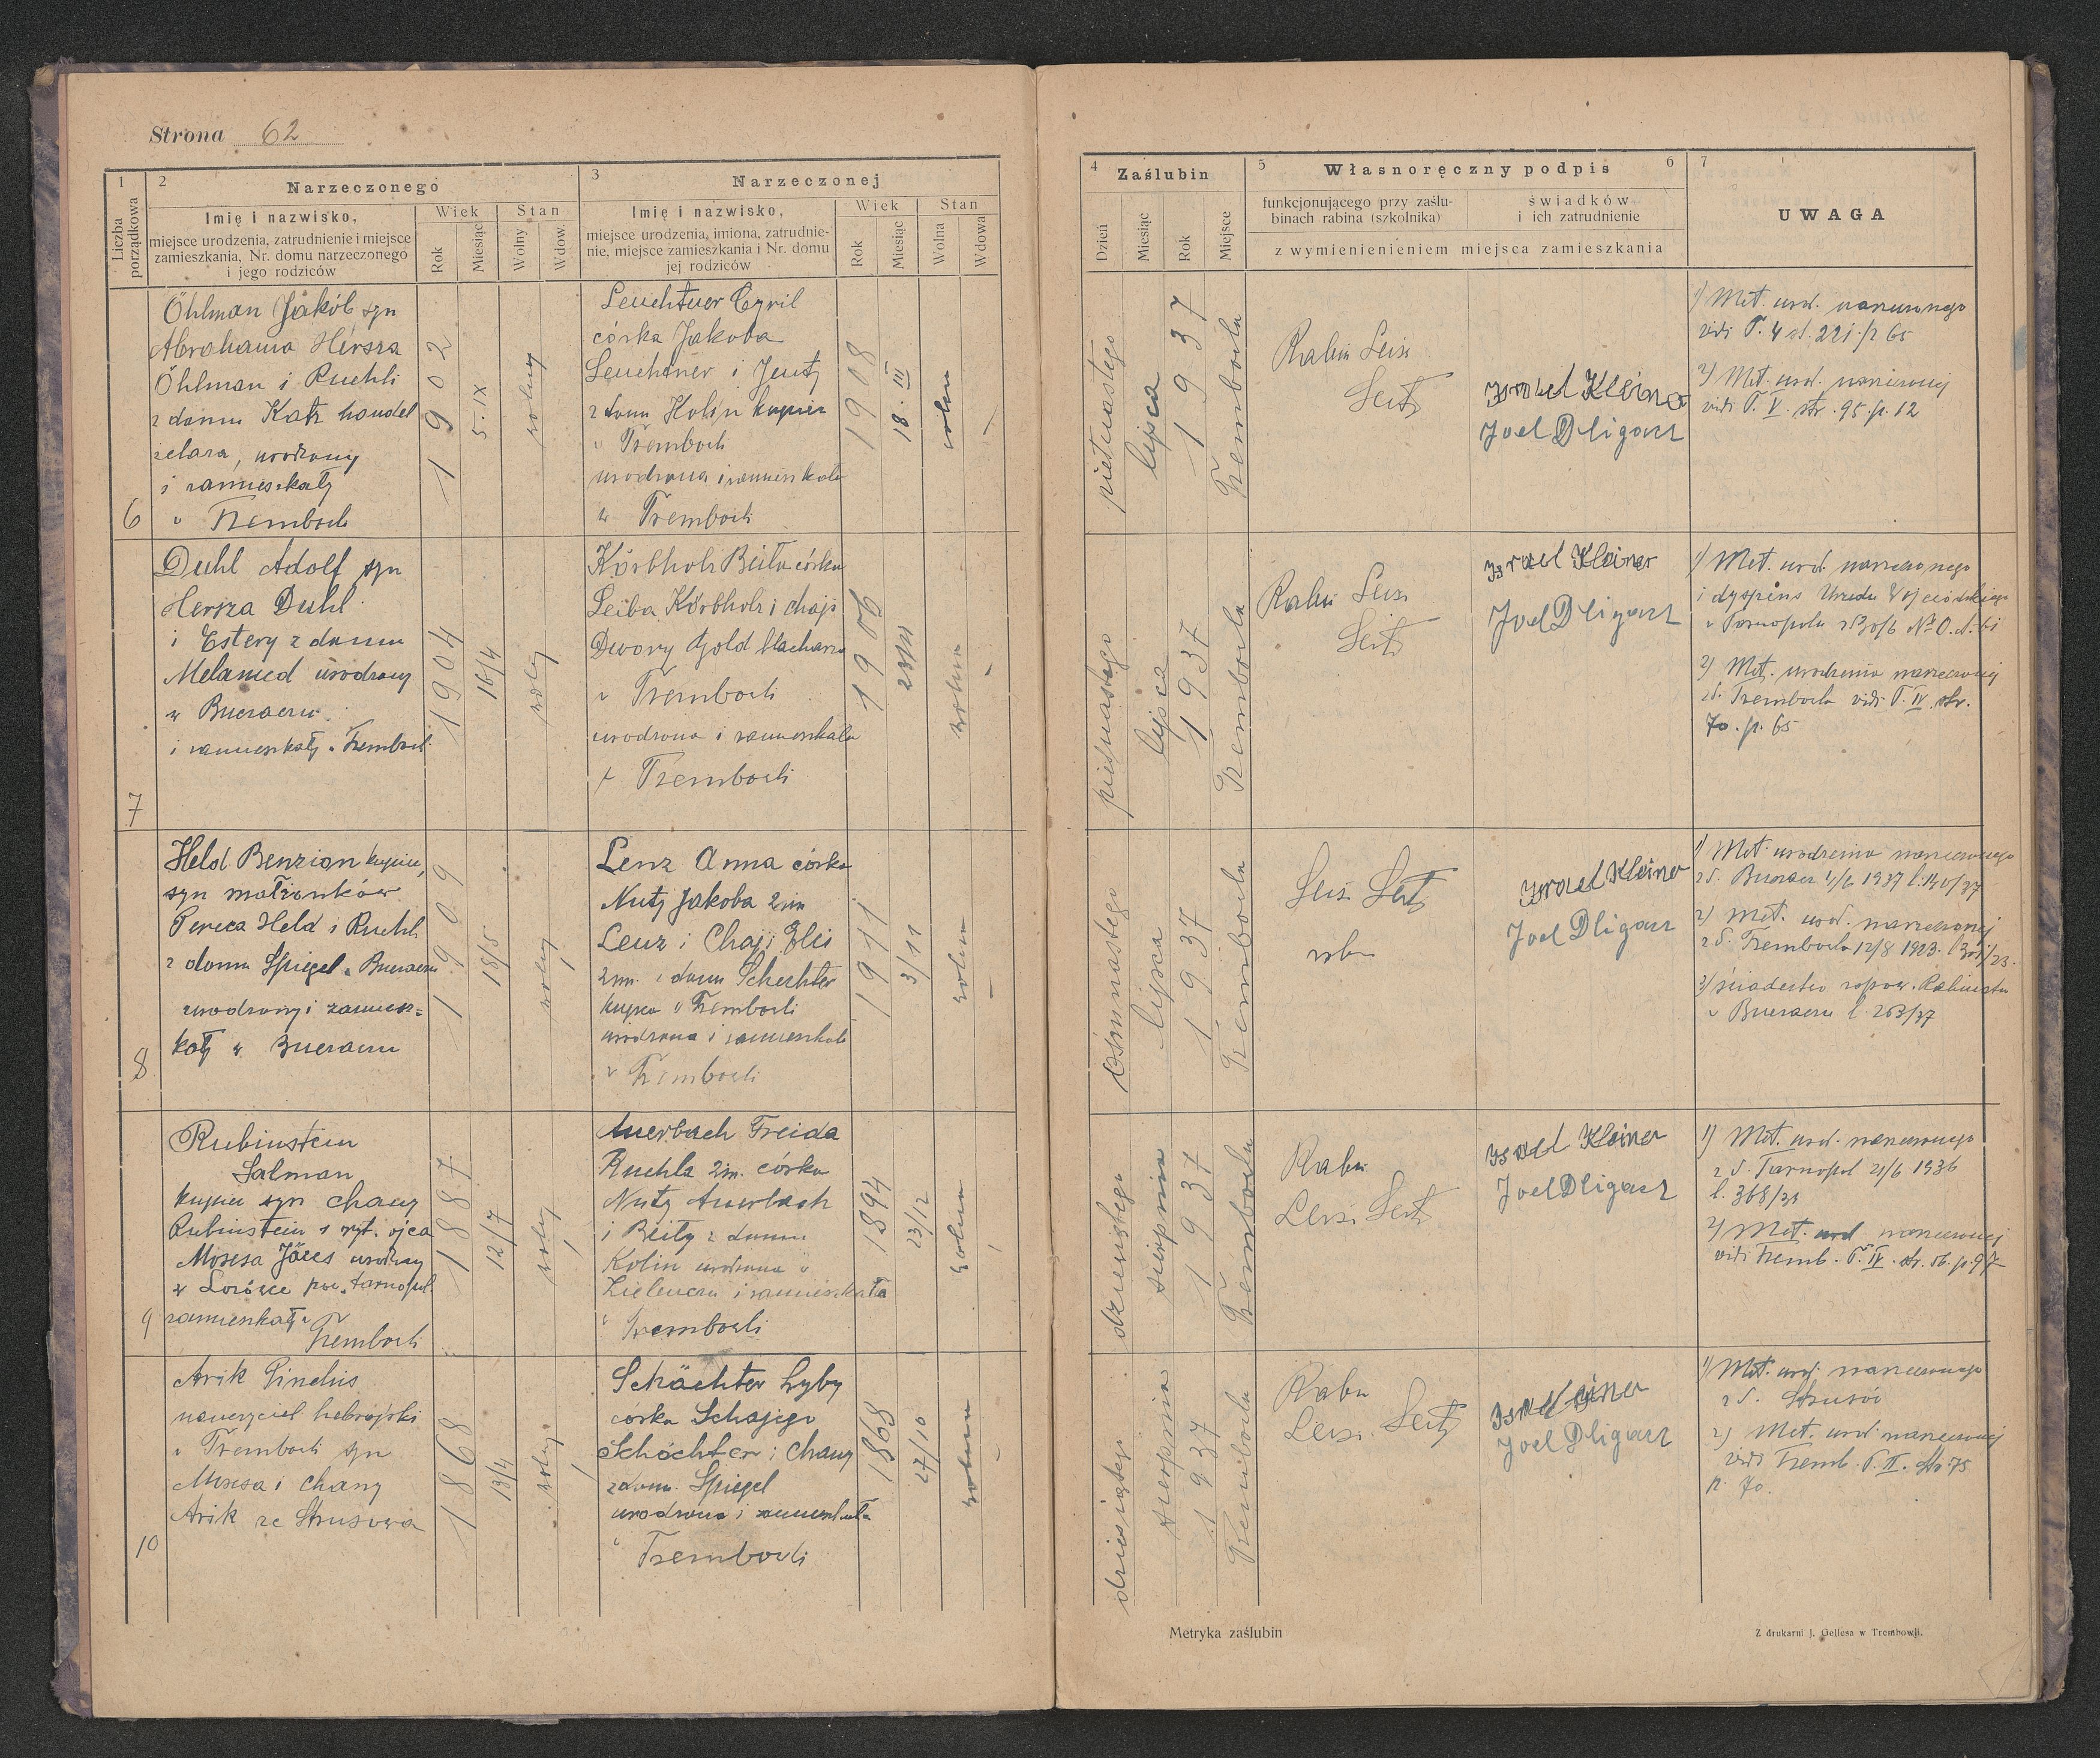 Strona 62
1
2
Narzeczonego
3
Narzeczonej
Liczba porządkowa
Imię i nazwisko,
miejsce urodzenia, zatrudnienie i miejsce
zamieszkania, Nr. domu narzeczonego
i jego rodziców
Wiek
Stan
Rok
Miesiąc
Wolny
Wdow.
Imię i nazwisko,
miejsce urodzenia, imiona, zatrudnie-
nie, miejsce zamieszkania i Nr. domu
jej rodziców
Wiek
Stan
Rok
Miesiąc
Wolna
Wdowa
4
Zaślubin
5
Własnoręczny podpis
6
7
UWAGA
Dzień
Miesiąc
Rok
Miejsce
funkcjonującego przy zaślu-
binach rabina (szkolnika)
świadków
i ich zatrudnienie
z wymienienieniem miejsca zamieszkania
6
Öhlman Jakób syn
Abrahama Hersza
Öhlman i Ruchli
z domu Katz handel
żelaza, urodzony
i zamieszkały
w Trembowli
1902
5.IX
wolny
Leuchtner Cyril
córka Jakoba
Leuchtner i Jenty
z domu Kolin kupiec
w Trembowli
urodzona i zamieszkała
w Trembowli
1908
18.III
wolna
piętnastego
lipca
1937
Trembowla
Rabin Leisi
Seitz
Israel Kleiner
Joel Dligacz
1) Met. urod. narzeczonego
vidi T. 4 st. 221. p 65
2) Met. urod. narzeczonej
vidi T. V. str. 95. p. 12
7
Duhl Adolf syn
Hersza Duhl
i Estery z domu
Melamed urodzony
w Buczaczu
i zamieszkały w Trembowli
1904
16/4
wolny
Körbholz Beila córka
Leiba Körbholz i Chaji
Dwory Gold blacharza
w Trembowli
urodzona i zamieszkała
w Trembowli
1906
wolna
piętnastego
lipca
1937
Trembowla
Rabin Leisi
Seitz
Israel Kleiner
Joel Dligacz
1) Met. urod. narzeczonego
i dyspens Urzędu Wojewódzkiego
w Tarnopolu
2) Met. urodzenia narzeczonej
z d. Trembowla vidi T. IV. str.
70. p. 65
8
Held Benzion kupiec,
syn małżonków
Pereca Held i Ruchli
z domu Spiegel w Buczaczu
urodzony i zamiesz=
kały w Buczaczu
1909
18/5
wolny
Lenz Anna córka
Nuty Jakoba 2im
Lenz i Chaji Elis
2im. z domu Schechter
kupca w Trembowli
urodzona i zamieszkała
w Trembowli
1911
3/11
wolna
ósmnastego
lipca
1937
Trembowla
Leisi Seitz
rabin
Israel Kleiner
Joel Dligacz
1) Met. urodzenia narzeczonego
z d. Buczacz 4/6 1937 l. 140/37
2) Met. urod. narzeczonej
z d. Trembowla 12/8 1923.
3) świadectwo zapow. Rabinatu
w Buczaczu l. 263/37
9
Rubinstein
Salman
kupiec syn Chany
Rubinstein i ojca
Mosesa Jäces urodzony
w pow. Tarnopol
zamieszkały w
Trembowli
1887
12/7
wolny
Auerbach Freida
Ruchla 2im. córka
Nuty Auerbach
i Beily z domu
Kolin urodzona w
Zieleńcu i zamieszkała
w Trembowli
1894
23/12
wolna
dziewiątego
sierpnia
1937
Trembowla
Rabin
Leisi Seitz
Israel Kleiner
Joel Dligacz
1) Met. urod. narzeczonego
z d. Tarnopol 21/6 1936
2) Met. urod. narzeczonej
vidi Tremb. T. IV. str. 56. p. 97
10
Arik Pinchis
nauczyciel hebrajski
w Trembowli syn
Mosesa i Chany
Arik ze Strusowa
1868
13/4
wolny
Schächter Lyby
córka Schajego
Schächter i Chany
z dom. Spiegel
urodzona i zamieszkała
w Trembowli
1868
27/10
wolna
dziesiątego
sierpnia
1937
Trembowla
Rabin
Leisi Seitz
Israel Kleiner
Joel Dligacz
1) Met. urod. narzeczonego
z d. Strusów
2) Met. urod. narzeczonej
vidi Tremb. T. II. str. 75
p. 70.
Metryka zaślubin
Z drukarni J. Gellesa w Trembowli.